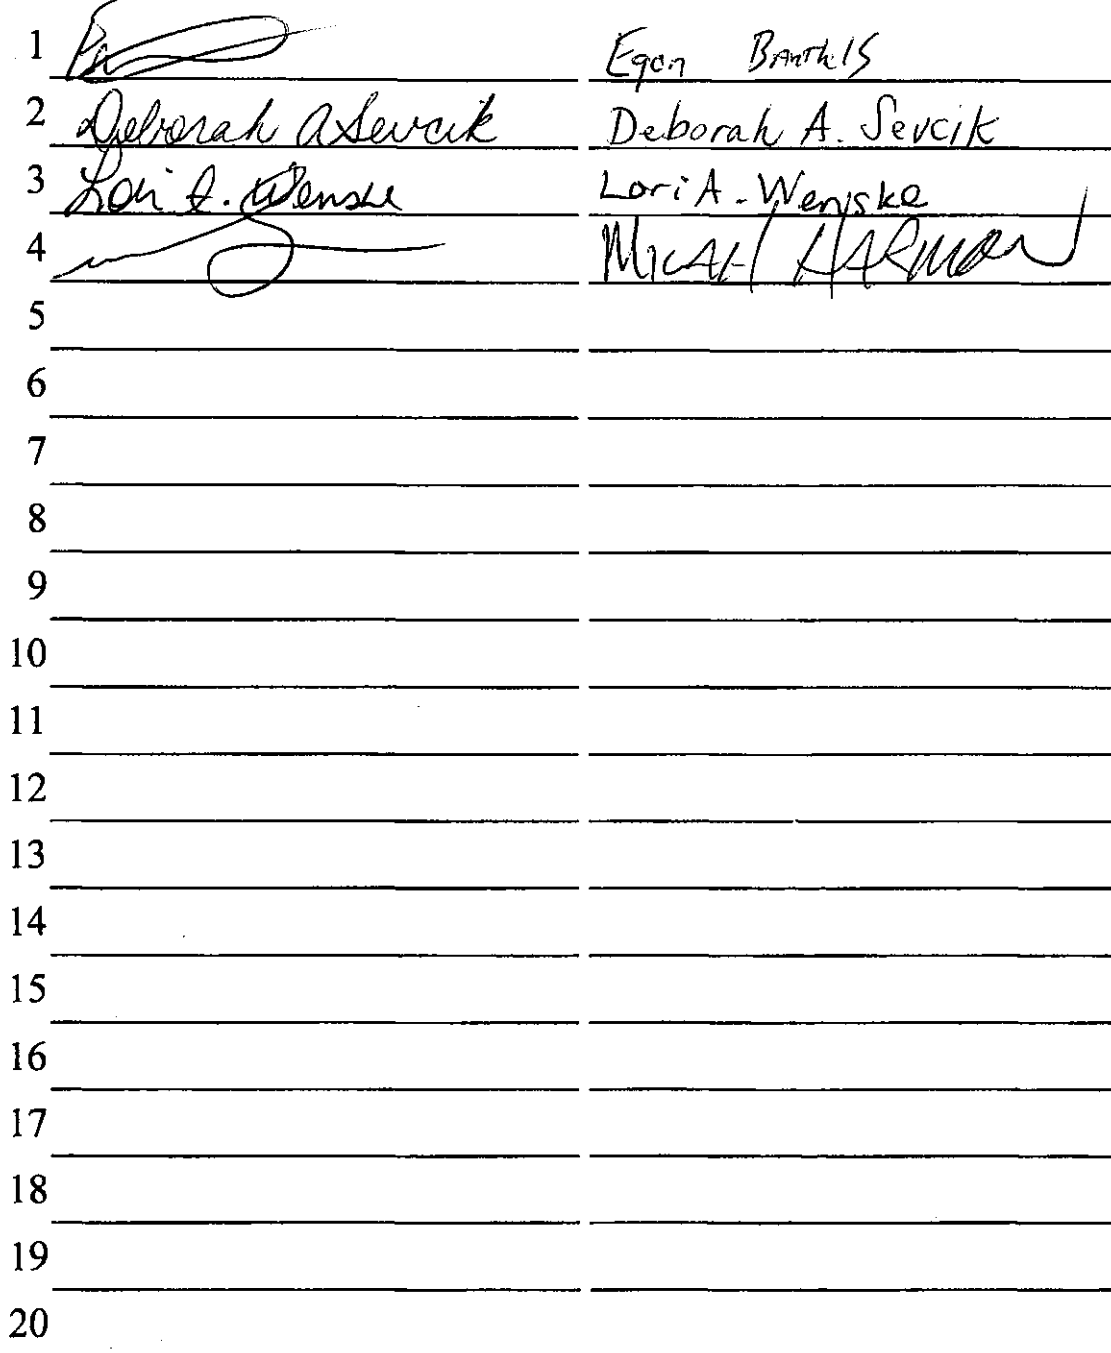 1 Egon Barthels
2 Deborah A Sevcik Deborah A. Sevcik
3 Lori A. Wenske Lori A. Wenske
4 Micah Harmon
5
6
7
8
9
10
11
12
13
14
15
16
17
18
19
20